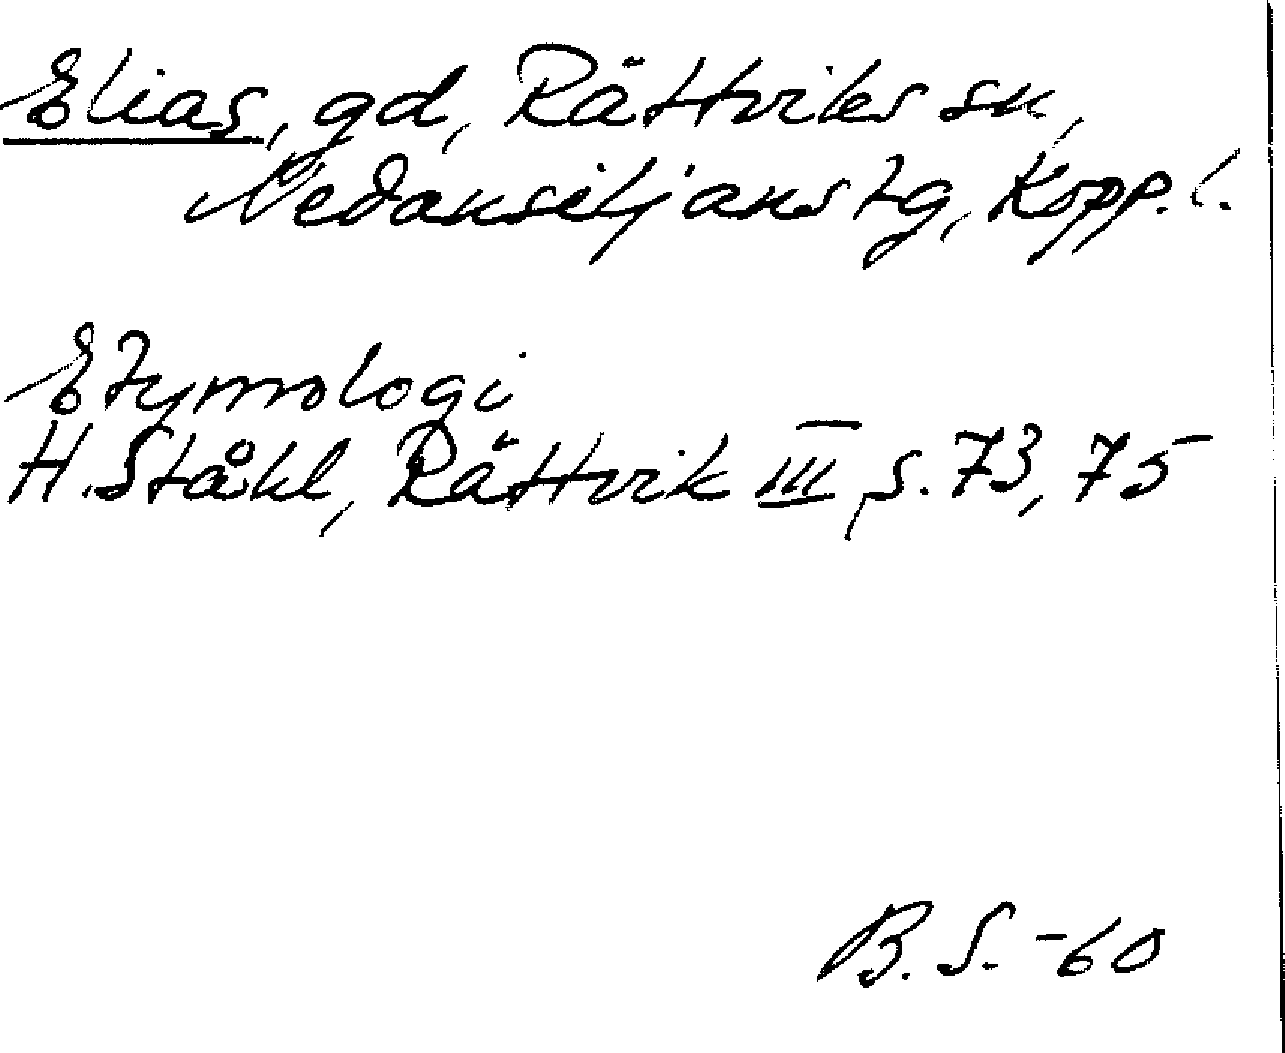 Elias, gd, Rättviks sn,
Nedansiljans tg, Kopp. l.
Etymologi
H. Ståhl, Rättvik III, s. 73, 75
B. S. -60